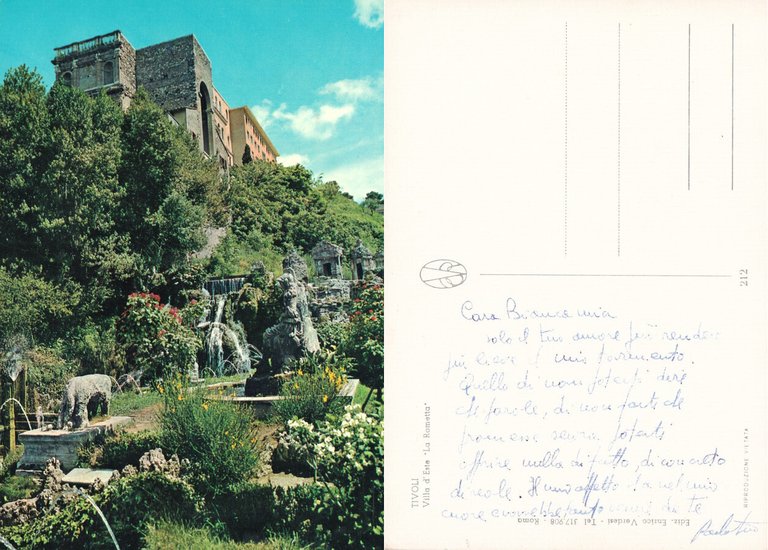 Cara Bianca mia
solo il tuo amore può rendere
più lieve il mio tormento.
Quello di non poterti dare
che parole, di non farti che
promesse senza poterti
offrire nulla di fatto, di concreto
di reale. Il mio affetto sta nel mio
cuore
di te
TIVOLI
Villa d'Este "La Rometta"
Ediz. Enrico Verdesi - Tel. 317.908 - Roma
212
RIPRODUZIONE VIETATA